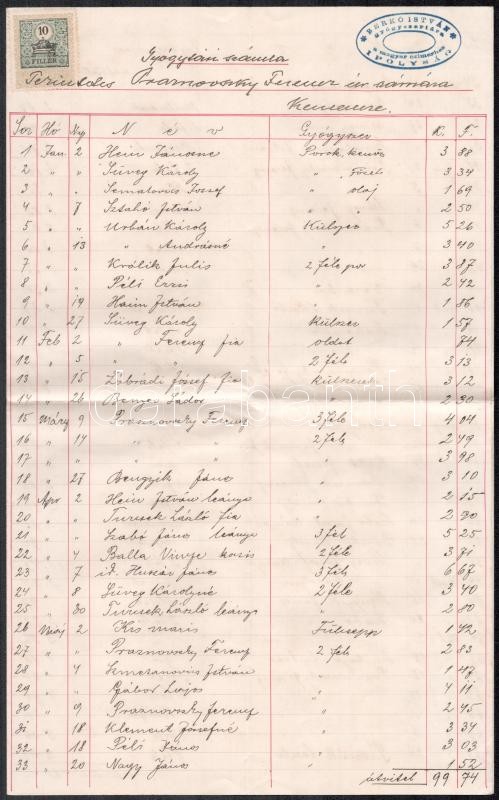 10
FILLÉR
BERKÓ ISTVÁN
gyógyszertára
a magyar czimerhez
IPOLYSÁG
Gyógytári számla
Tekintetes Praznovszky Ferencz úr számára
Kemencze.
Sor Hó Nap Név Gyógyszer K. F.
1 Jan 2 Hein Jánosné kenőcs 3 88
2 " " Süveg Károly " 3 34
3 " " József " olaj 1 69
4 " 7 Szabó István " " 2 50
5 " " Urbán Károly Külszer 5 26
6 " 13 " Andrásné " 3 40
7 " " Králik Julis 2 féle por 3 87
8 " " Péli Erzsi " 2 42
9 " 19 Haim István " 1 86
10 " 27 Süveg Károly külszer 1 57
11 Feb 2 " Ferencz fia oldat 74
12 " 5 " " 2 féle 3 13
13 " 15 Zábrádi József fia külszerek 3 12
14 " 26 Benyes Sándor " 2 30
15 Márcz 9 Praznovszky Ferencz 3 féle 4 04
16 " 14 " " 2 féle 2 49
17 " " " " " 3 98
18 " 27 Bengyik János " 3 10
19 Apr 2 Hein István leánya " 2 15
20 " " Turcsek László fia " 2 30
21 " " Szabó János leánya 3 fél 5 25
22 " 4 Balla Vincze kocsis 2 féle 3 71
23 " 7 id. Huszár János 3 féle 6 67
24 " 8 Süveg Károlyné 2 féle 3 40
25 " 30 Turcsek László leánya " 2 80
26 Máj 2 Kis Maris 1 42
27 " " Praznovszky Ferencz 2 féle 2 83
28 " 4 István " 1 47
29 " " Gábor Lajos " 4 11
30 " 9 Praznovszky Ferencz " 2 45
31 " 18 Klement Józsefné " 3 34
32 " 18 Péli János " 3 03
33 " 20 Nagy János " 1 52
átvitel 99 74
darabanth